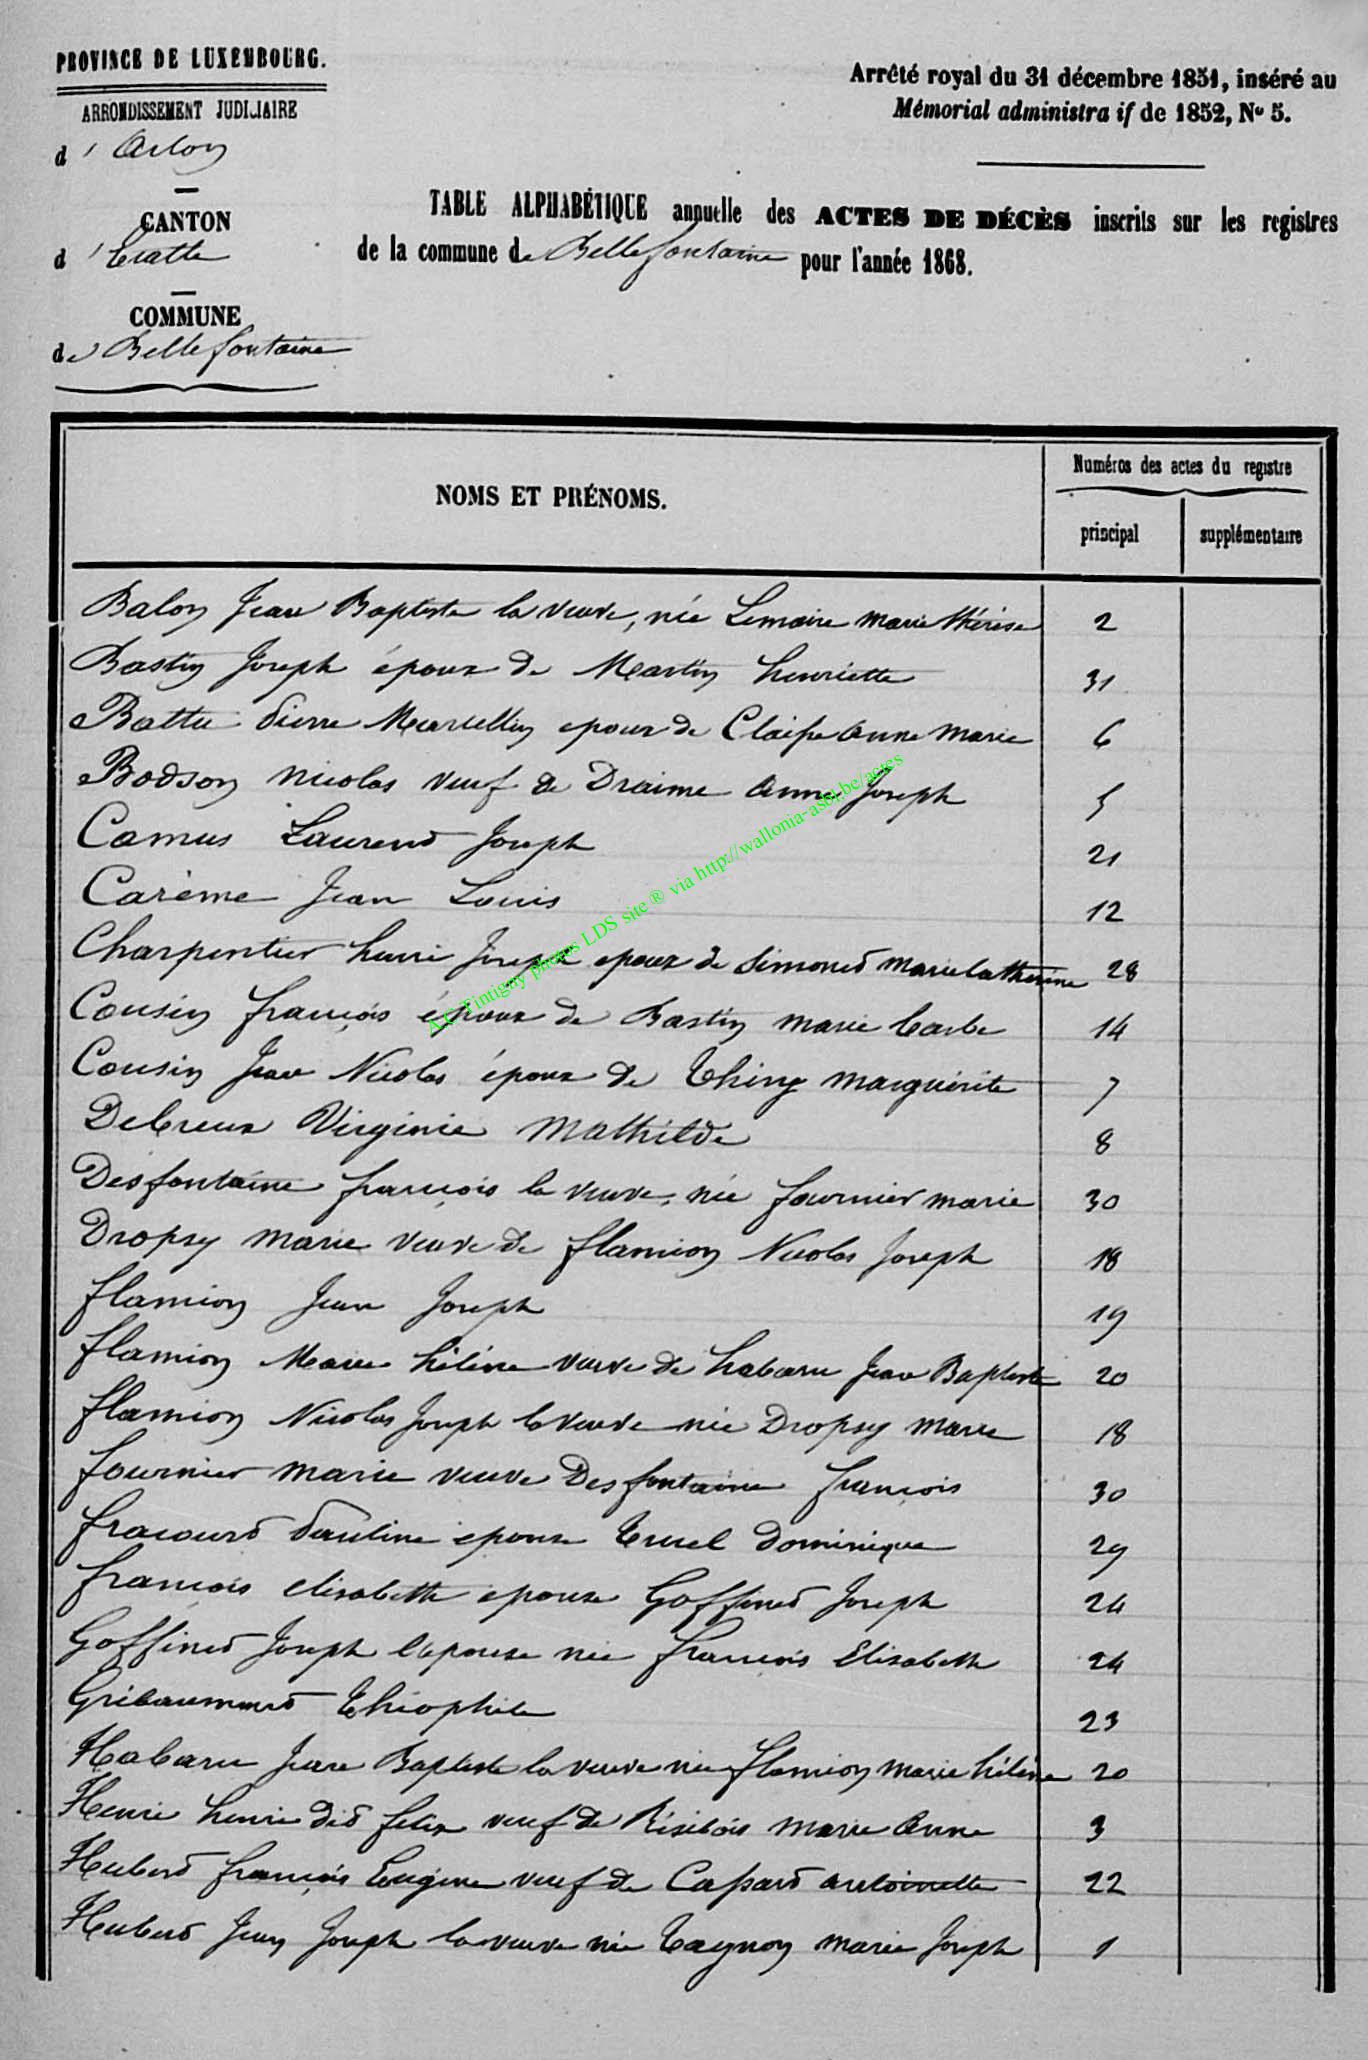 PROVINCE DE LUXEMBOURG.
ARRONDISSEMENT JUDICIAIRE
d'Arlon
CANTON
d'Etalle
COMMUNE
de Bellefontaine
Arrêté royal du 31 décembre 1851, inséré au
Mémorial administra if de 1852, No 5.
TABLE ALPHABÉTIQUE annuelle des ACTES DE DÉCÈS inscrits sur les registres
de la commune de Bellefontaine pour l'année 1868.
NOMS ET PRÉNOMS.
Numéros des actes du registre
principal
supplémentaire
Balon Jean Baptiste la veuve, née Lemaire marie thérèse 2
Bastin Joseph époux de Martin henriette 31
Battu Pierre Marcellin epoux de Claisse anne marie 6
Bodson nicolas veuf de Draime anne Joseph 5
Camus Laurent Joseph 21
Carème Jean Louis 12
Charpentier henri Joseph epoux de Simonet marie Catherine 28
Cousin françois époux de Bastin marie barbe 14
Cousin Jean Nicolas époux de Thiry marguerite 7
Decreux Virginie Mathilde 8
Desfontaine françois la veuve, née fournier marie 30
Dropsy marie veuve de flamion Nicolas Joseph 18
flamion Jean Joseph 19
flamion Marie hélène veuve de habaru Jean Baptiste 20
flamion Nicolas Joseph la veuve née Dropsy marie 18
fournier marie veuve Desfontaine françois 30
fracourt Pauline epouse Truel Dominique 29
françois elisabeth epouse Goffinet Joseph 24
Goffinet Joseph l'epouse née françois Elisabeth 24
Gribaumont Théophile 23
Habaru Jean Baptiste la veuve née flamion marie hélène 20
Henri henri dit felix veuf de Résibois marie anne 3
Hubert françois Eugène veuf de Capard antoinette 22
Hubert Jean Joseph la veuve née Tagnon marie Joseph 1
A.C. Tintigny photos LDS site ® via http://wallonia-asbl.be/actes